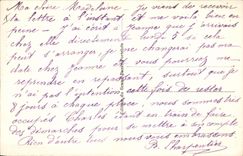 Ma chère Madeleine, Je viens de recevoir
ta lettre à l'instant, et me voilà bien en
peine. J'ai écrit à Jeanne que j'irais
chez elle directement lundi 5 si cela
peut s'arranger, je ne changerai pas ma
date chez Jeanne et vous pourrez me
reprendre en repartant, surtout que je
n'ai pas l'intention cette fois de rester
8 jours à chaque place, nous sommes très
occupés Charles étant en train de faire
des démarches pour se mettre à son compte
Rien d'autre nous vous embrassons
B. Charpentier